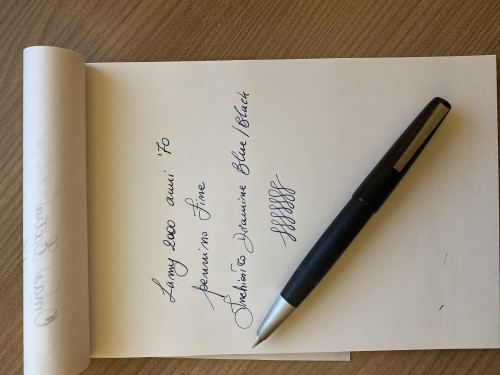 Lamy 2000 anni '70
pennino fine
Inchiostro Diamine Blue/Black